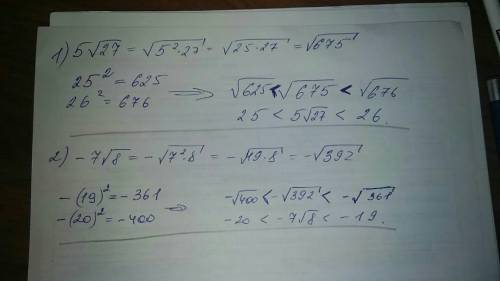 1) 5√27 = √5²·27 = √25·27 = √675
25² = 625
26² = 676 ⇒ √625 < √675 < √676
25 < 5√27 < 26.
2) -7√8 = -√7²·8 = -√49·8 = -√392
-(19)² = -361
-(20)² = -400 ⇒ -√400 < -√392 < -√361
-20 < -7√8 < -19.